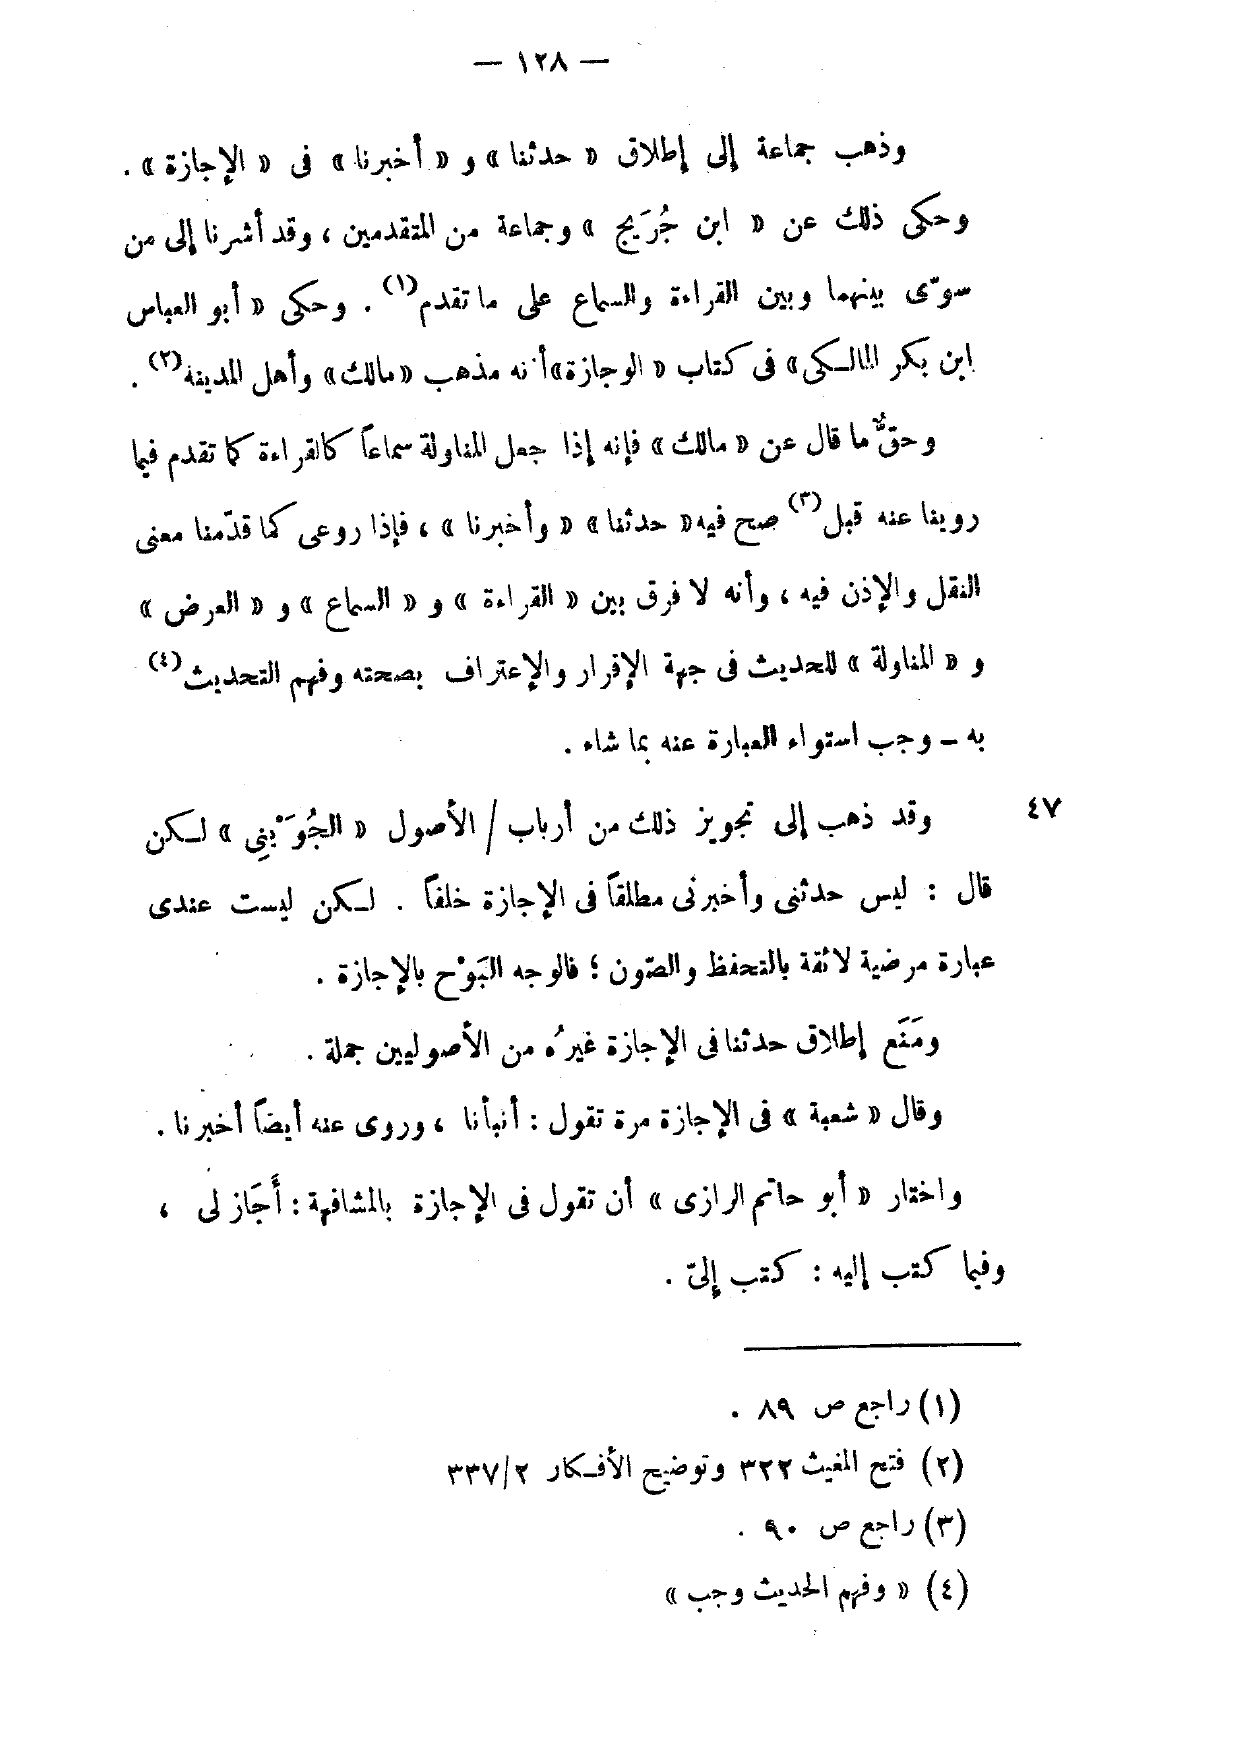 — ١٢٨ —
وذهب جماعة إلى إطلاق « حدثنا » و « أخبرنا » فى « الإجازة » .
وحكى ذلك عن « ابن جُرَيج » وجماعة من المتقدمين ، وقد أشرنا إلى من
سوّى بينهما وبين القراءة والسماع على ما تقدم(١) . وحكى « أبو العباس
ابن بكر المالكى » فى كتاب « الوجازة» أنه مذهب «مالك» وأهل المدينة(٢) .
وحقٌّ ما قال عن « مالك » فإنه إذا جعل المناولة سماعاً كالقراءة كما تقدم فيما
روينا عنه قبل(٣) صح فيه « حدثنا » « وأخبرنا » ، فإذا روعى كما قدّمنا معنى
النقل والإذن فيه ، وأنه لا فرق بين « القراءة » و « السماع » و « العرض »
و « المناولة » للحديث فى جهة الإقرار والإعتراف بصحته وفهم التحديث(٤)
به ــ وجب استواء العبارة عنه بما شاء .
وقد ذهب إلى تجويز ذلك من أرباب / الأصول « الجُوَيْنِى » لكن ٤٧
قال : ليس حدثنى وأخبرنى مطلقاً فى الإجازة خلفاً . لكن ليست عندى
عبارة مرضية لائقة بالتحفظ والصّون ؛ فالوجه البَوْح بالإجازة .
ومَنَع إطلاق حدثنا فى الإجازة غيرُه من الأصوليين جملة .
وقال « شعبة » فى الإجازة مرة تقول : أنبأنا ، وروى عنه أيضاً أخبرنا .
واختار « أبو حاتم الرازى » أن تقول فى الإجازة بالمشافهة : أَجَاز لى ،
وفيما كتب إليه : كتب إلىّ .
(١) راجع ص ٨٩ .
(٢) فتح المغيث ٣٢٢ وتوضيح الأفكار ٢/٣٣٧
(٣) راجع ص ٩٠ .
(٤) « وفهم الحديث وجب »